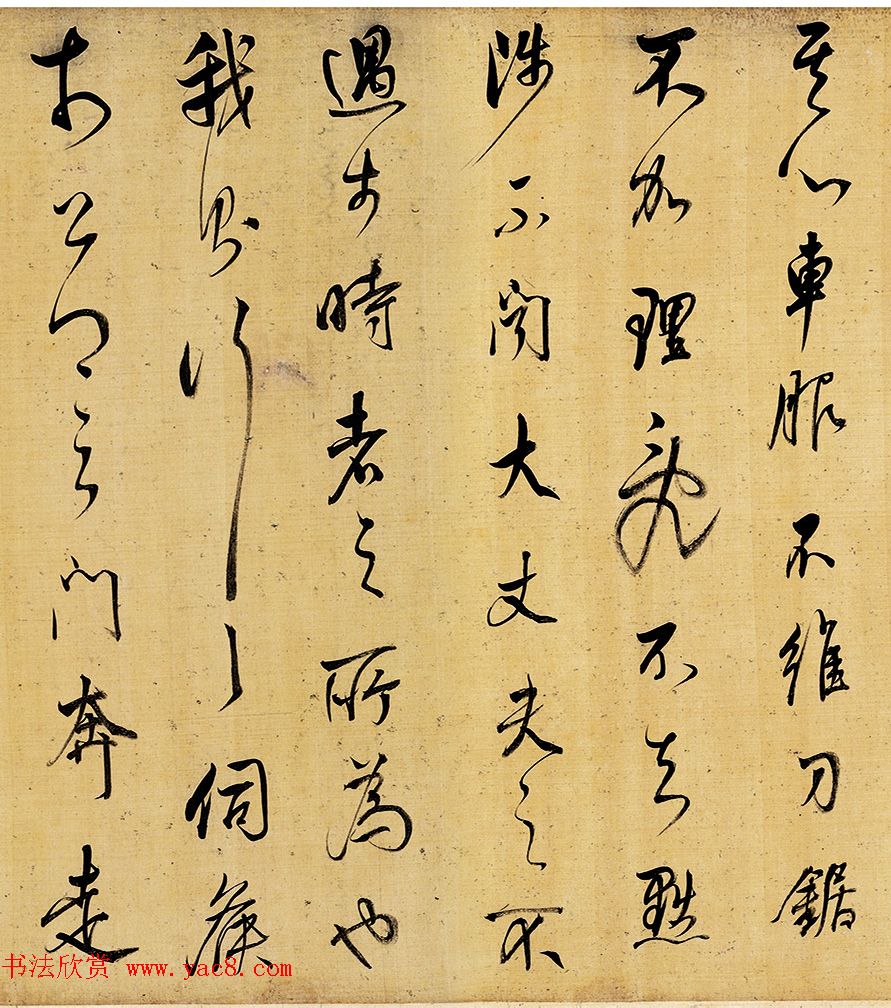 其心車服不維刀鋸
不加理亂不知黜
陟不聞大丈夫之不
遇於時者之所為也
我則行之伺候
於公卿之門奔走
书法欣赏 www.yac8.com